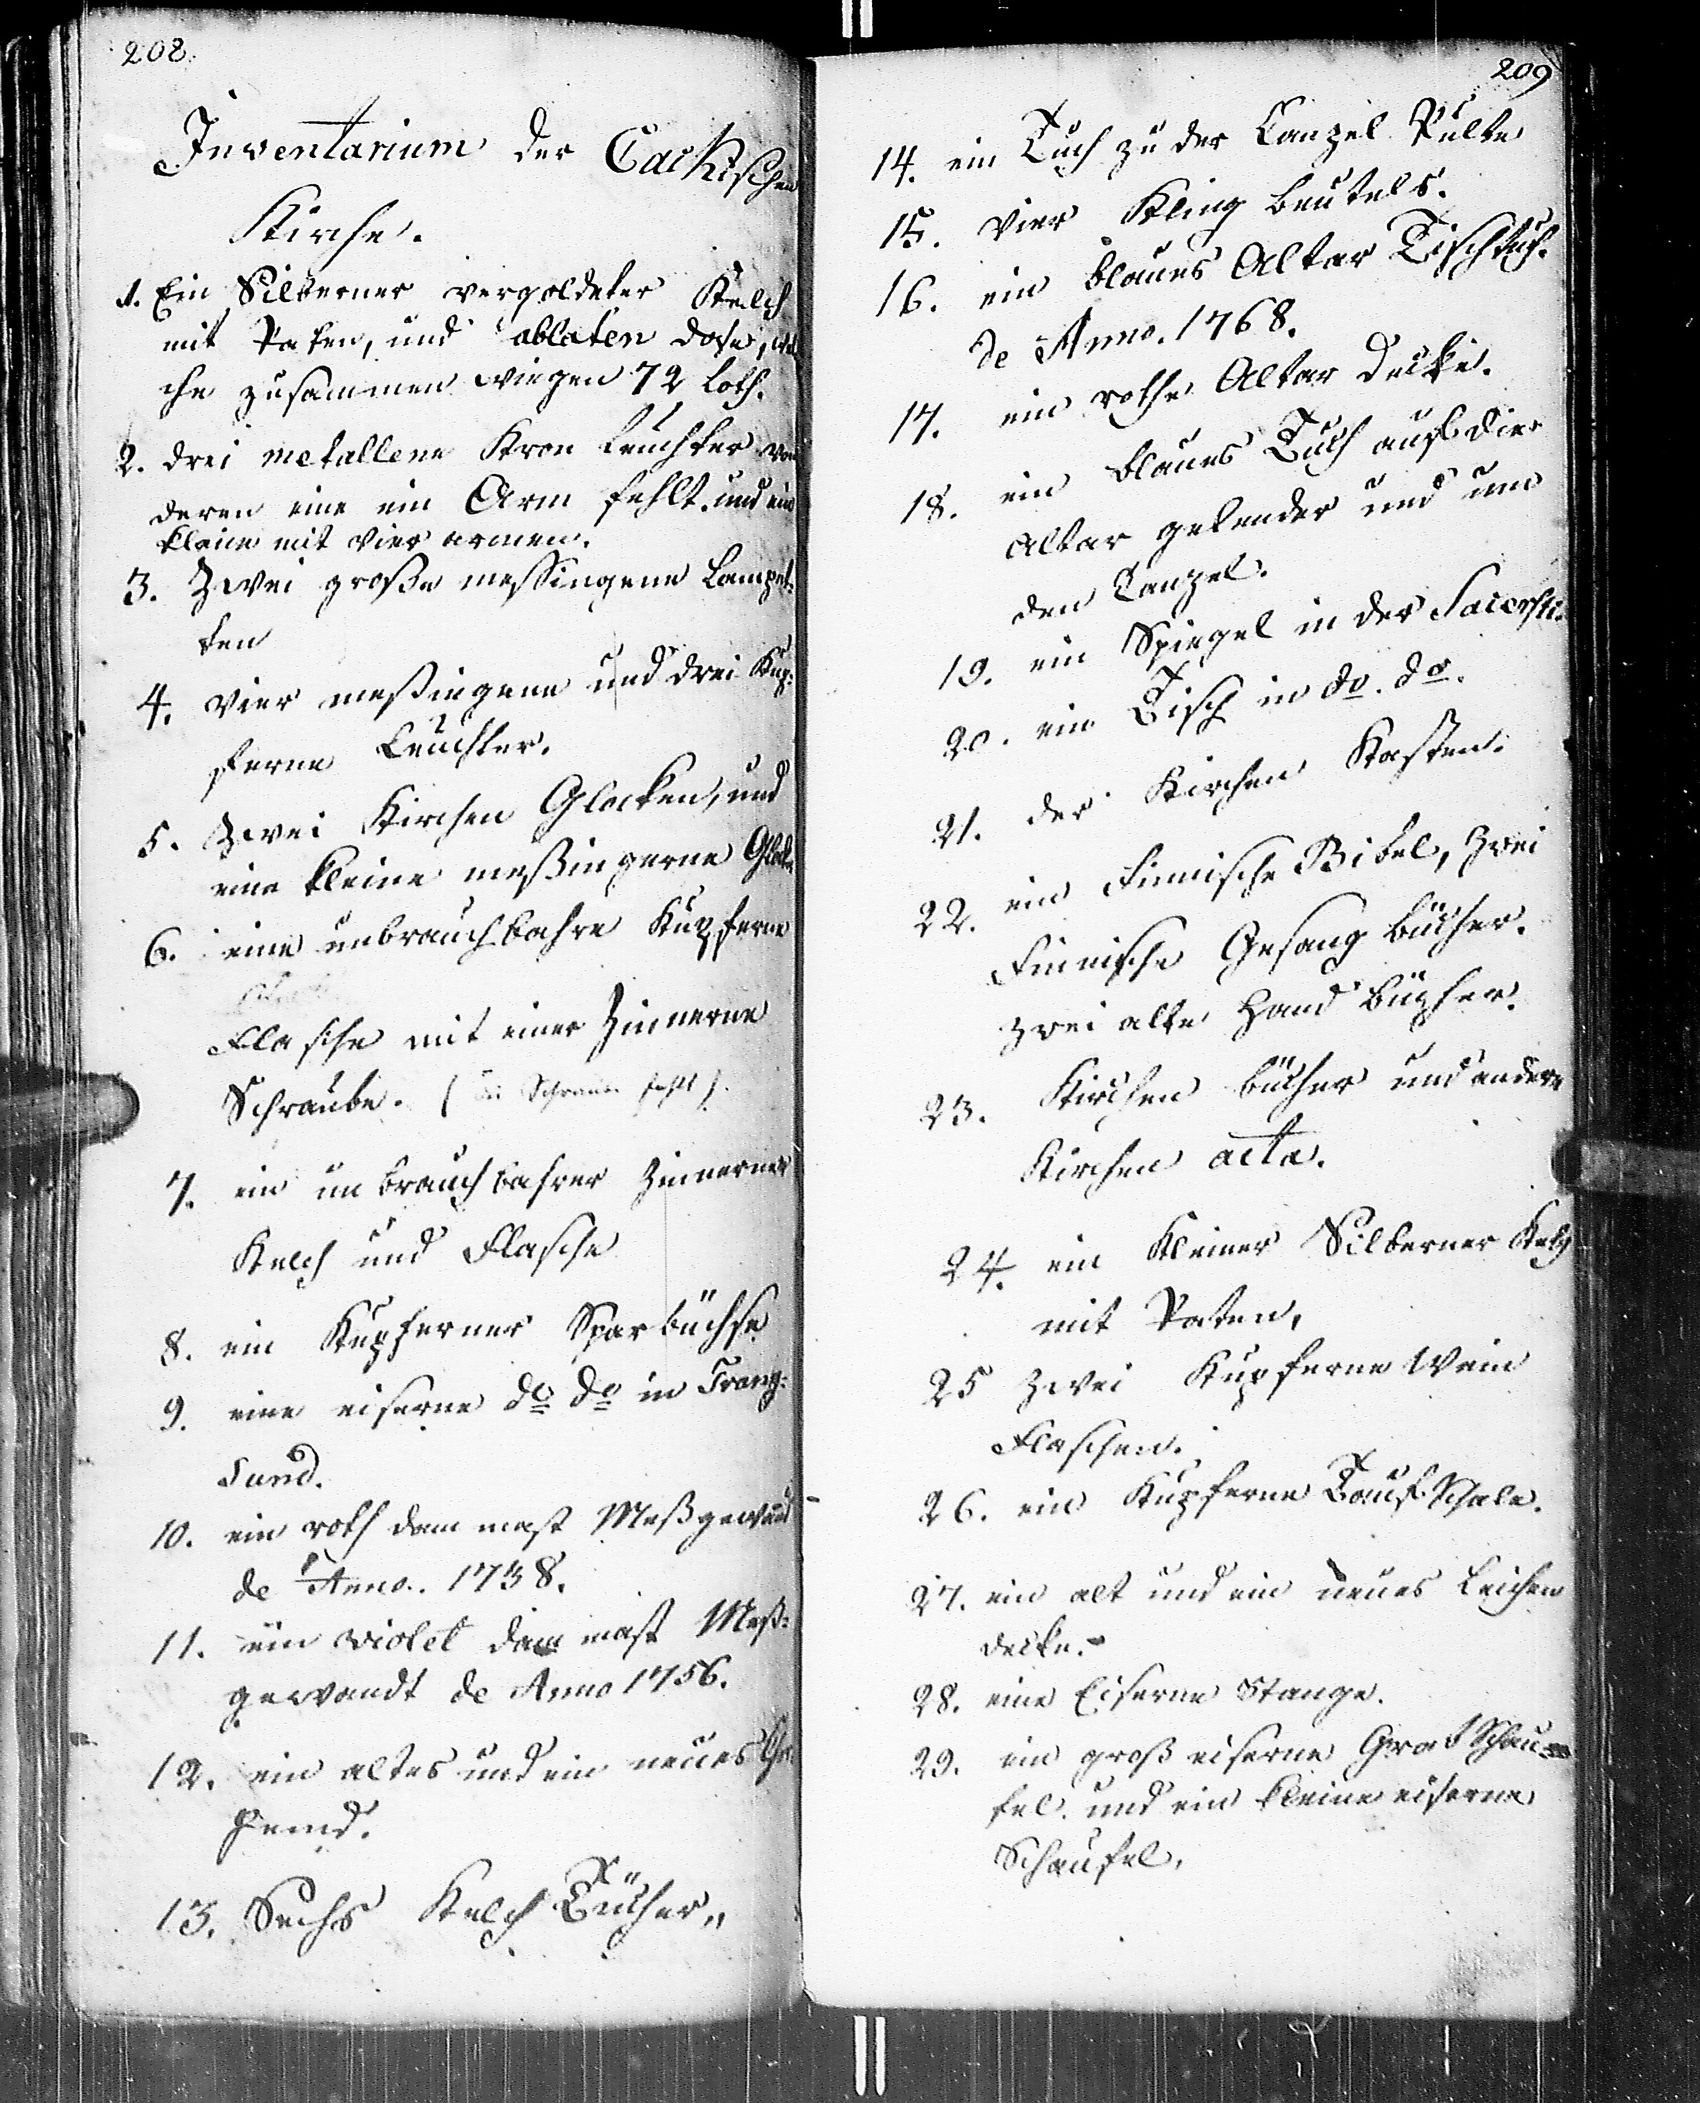 208.
Inventarium der Cackischen
Kirche.
1. Ein Silberner vergoldeter Kelch
mit Paten, und ablaten Dose, wel
che zusammen wiegen 72 Loth.
2. drei metallene Kron Leuchter von
deren eine ein Arm fehlt. und ein
kleine mit vier armen.
3. Zwei große messingene Lampet-
ten
4. vier meßingene und drei Kup-
ferne Leuchter.
5. Zwei Kirchen Glocken, und
eine kleine meßingerne Glocke
6. eine unbrauchbahre Kupferne
Flasche mit einer Zinnerne
Schraube. (die Schraube fehlt).
7. ein unbrauchbahrer Zinnerner
Kelch und Flasche
8. ein Kupferner Sparbüchse
9. eine eiserne do do in Trang-
Sund.
10. ein roth dammast Meßgewand
de Anno. 1738.
11. ein violet dammast Meß-
gewandt de Anno 1756.
12. ein altes und ein neues
hemd.
13. Sechs Kelch Tücher„
209
14. ein Tuch zu der Canzel Pulte
15. vier Kling beutels.
16. ein blaues Altar Tischtuch.
de Anno. 1768.
17. ein rothe Altar Decke.
18. ein blaues Tuch auf die
Altar gelender und um
den Canzel.
19. ein Spiegel in der Sacristi.
20. ein Tisch in do. do.
21. der Kirchen Kasten.
22. ein Finnische Bibel, zwei
Finnische Gesang bücher.
zwei alte Hand bücher.
23. Kirchen bücher und andere
Kirchen acta.
24. ein Kleiner Silberner Kelch
mit Paten,
25 zwei Kupferne Wein
Flaschen.
26. ein Kupferne Tauf Schale.
27. ein alt und ein neues Leichen
decke.
28. eine Eiserne Stange.
29. ein groß eiserne Grab Schau-
fel. und ein kleine eiserne
Schaufel.